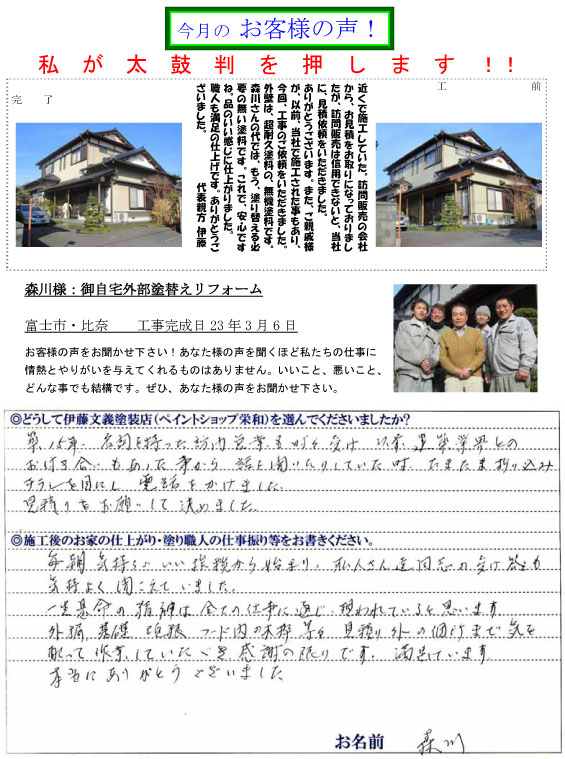 今月の お客様の声！
私が太鼓判を押します！！
工 前
完 了
近くで施工していた、訪問販売の会社
から、お見積をお取りになっておりまし
たが、訪問販売は信用できないと、当社
に、見積依頼をいただきました。
ありがとうございます。また、ご親戚様
が、以前、当社で施工された事もあり、
今回、工事のご依頼をいただきました。
外壁は、超耐久塗料の、無機塗料です。
森川さんの代では、もう、塗り替える必
要の無い塗料です。これで、安心です
ね。品のいい感じに仕上がりました。
職人も満足の仕上げです。ありがとうご
ざいました。 代表親方 伊藤
森川様：御自宅外部塗替えリフォーム
富士市・比奈 工事完成日 23 年 3 月 6 日
お客様の声をお聞かせ下さい！あなた様の声を聞くほど私たちの仕事に
情熱とやりがいを与えてくれるものはありません。いいこと、悪いこと、
どんな事でも結構です。ぜひ、あなた様の声をお聞かせ下さい。
◎どうして伊藤文義塗装店（ペイントショップ栄和）を選んでくださいましたか？
築15年、名刺を持った訪内営業も 受け 以前 建築業界との
お付き合いもあった事から 話を聞いたりしていた時、たまたま折り込み
チラシを目にし 電話をかけました。
見積りをお願いして決めました。
◎施工後のお家の仕上がり・塗り職人の仕事振り等をお書きください。
毎朝 気持ちいい挨拶から始まり、職人さん達同志の受け答えも
気持よく聞こえていました。
一生懸命の精神は全ての仕事に通じ 現われていると思います
外構、基礎 フード内の木枠等々 見積り外の個所まで気を
配って作業していたゞき感謝の限りです。満足しています
本当にありがとうございました
お名前 森川